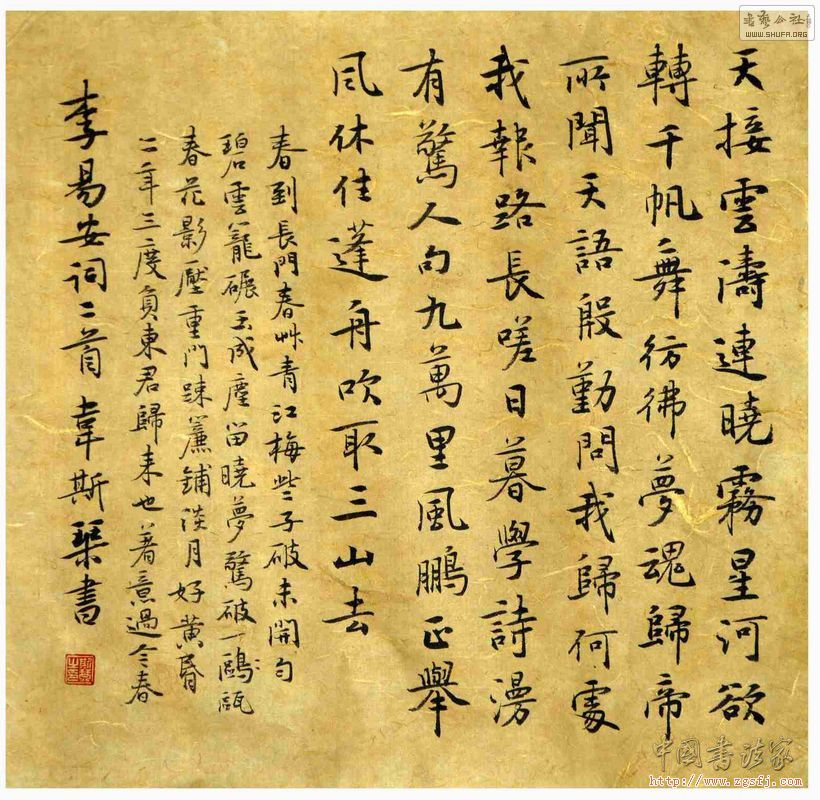 書藝公社
WWW.SHUFA.ORG
天接雲濤連曉霧星河欲
轉千帆舞彷彿夢魂歸帝
所聞天語殷勤問我歸何處
我報路長嗟日暮學詩漫
有驚人句九萬里風鵬正舉
風休住蓬舟吹取三山去
春到長門春艸青江梅些子破未開勻
碧雲籠碾玉成塵留曉夢驚破一鷗甌
春花影壓重門疎簾鋪淡月好黃昏
二年三度負東君歸來也著意過今春
李易安詞二首韋斯琴書
中國書法家
http://www.zgsfj.com